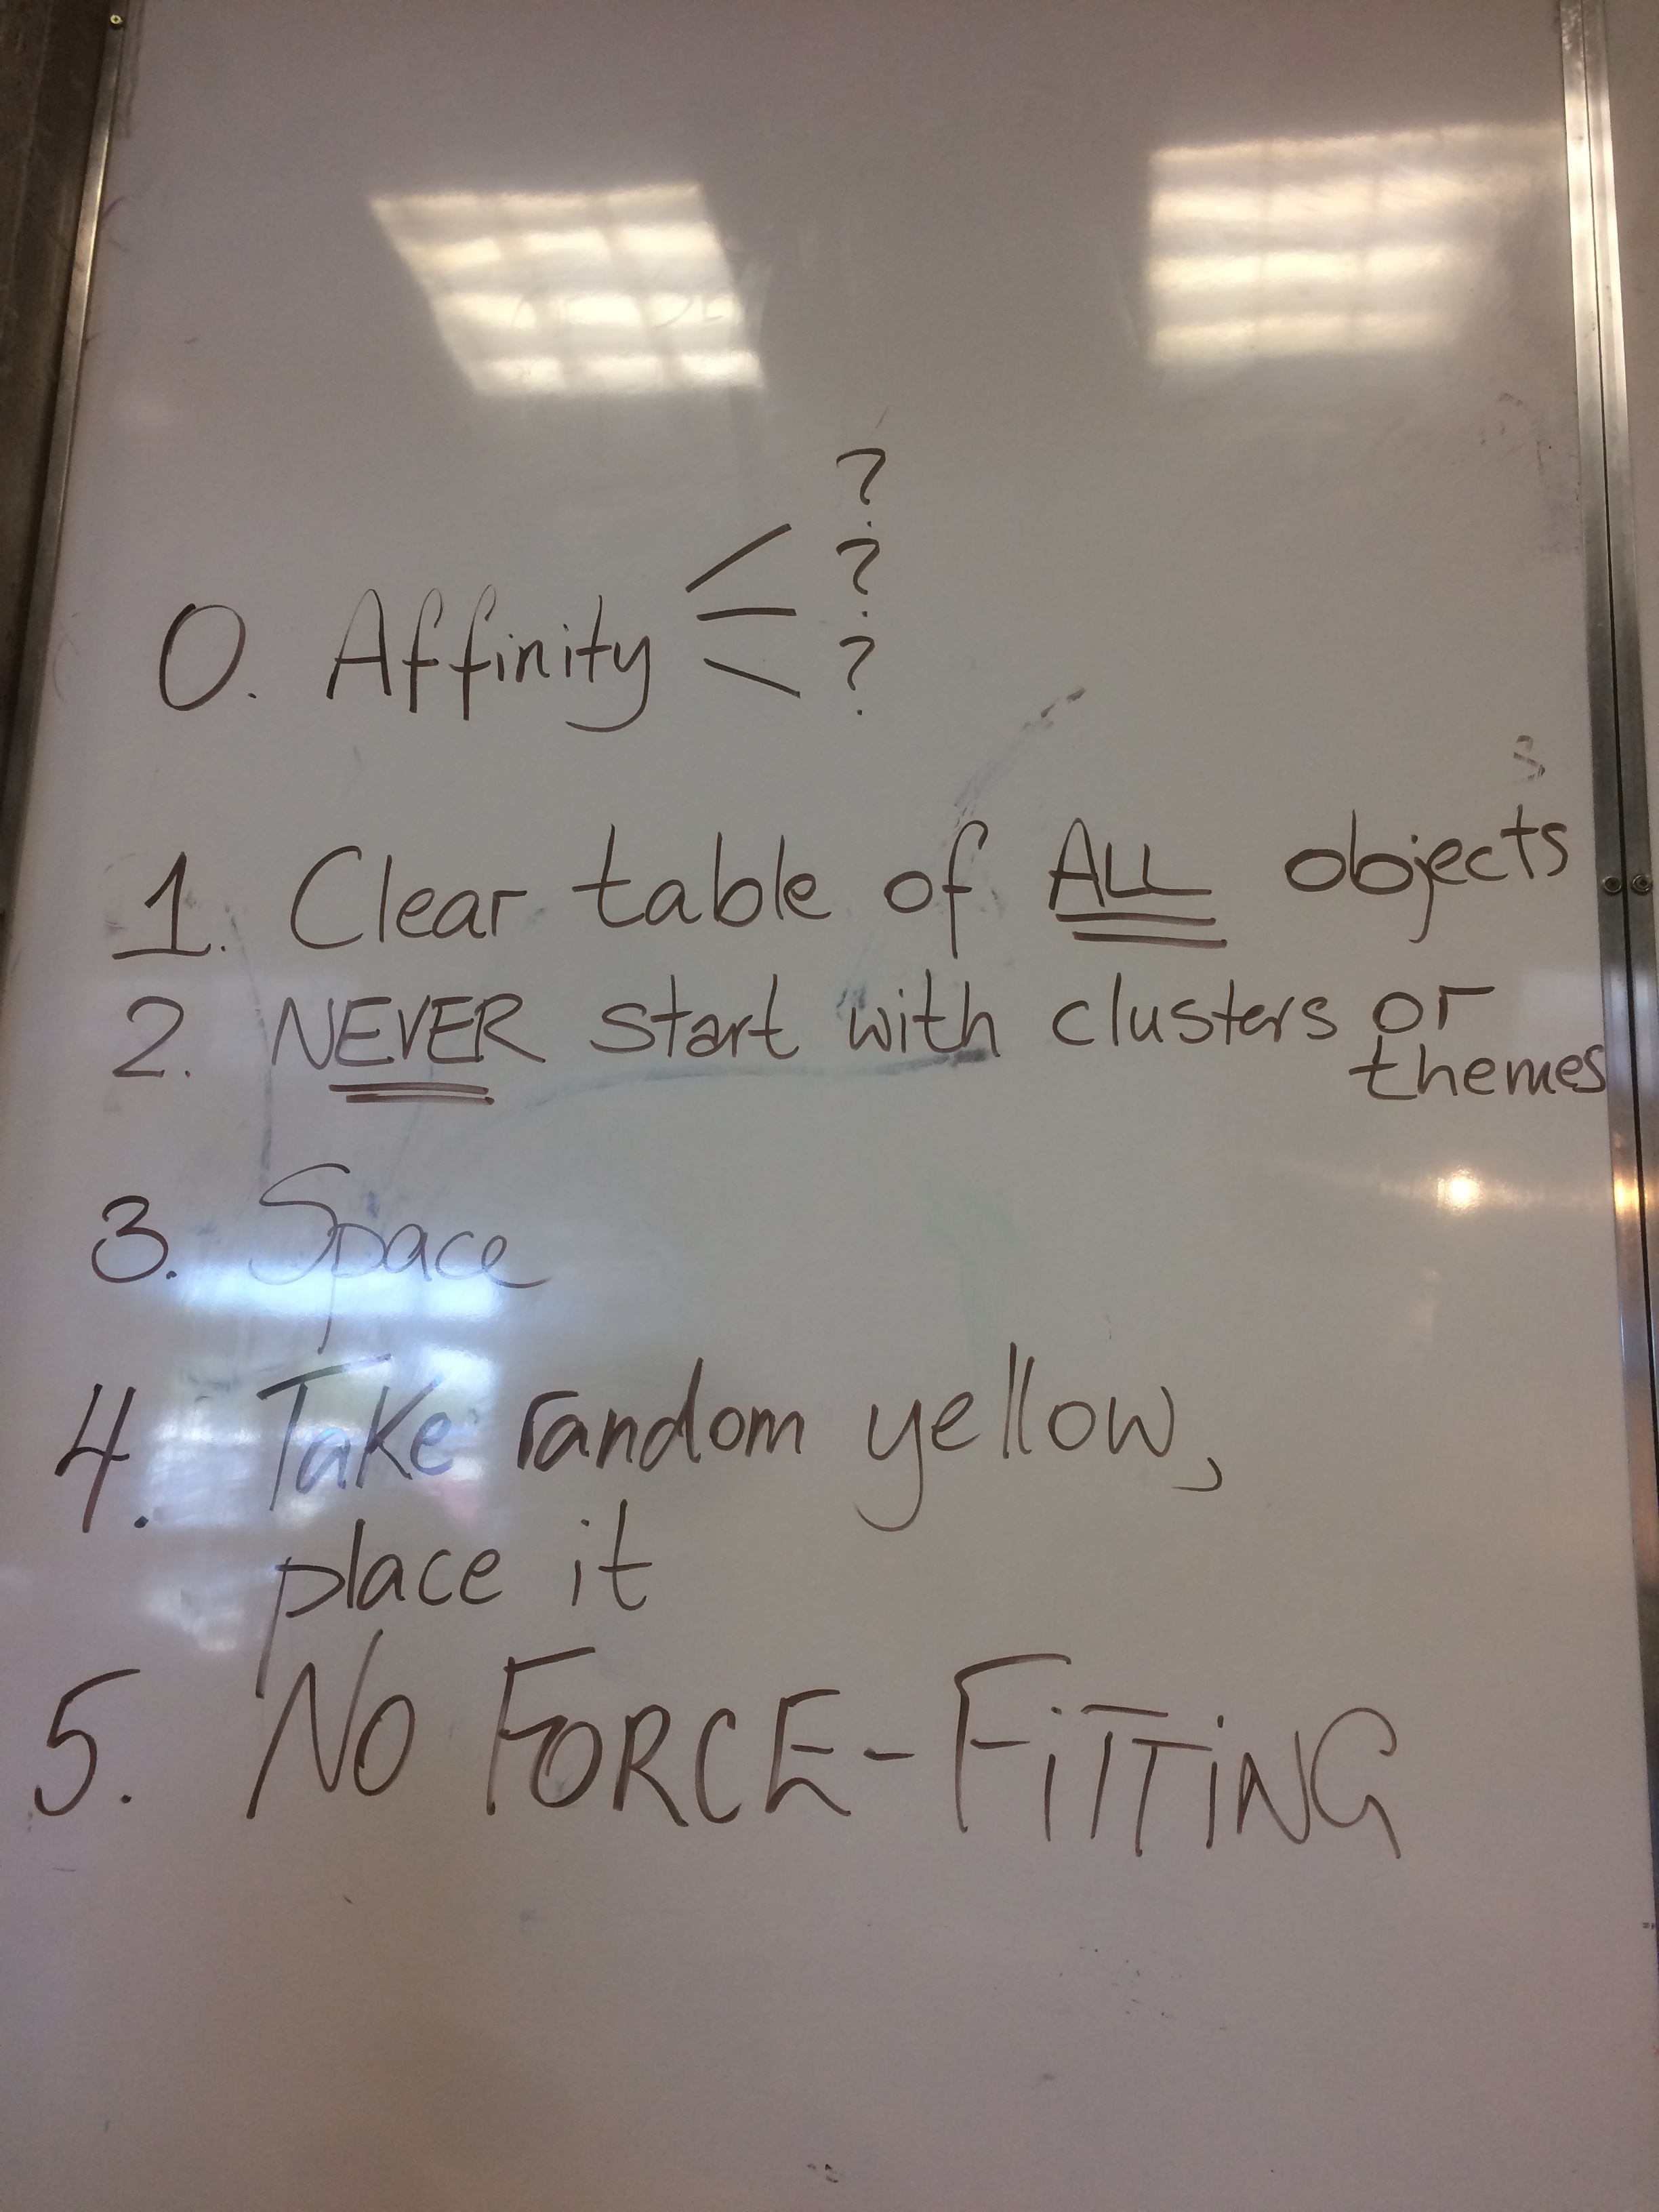 ?
?
0. Affinity ?
1. Clear table of ALL objects
2. NEVER start with clusters or
themes
3. Space
4. Take random yellow,
place it
5. NO FORCE-FiTTiNG